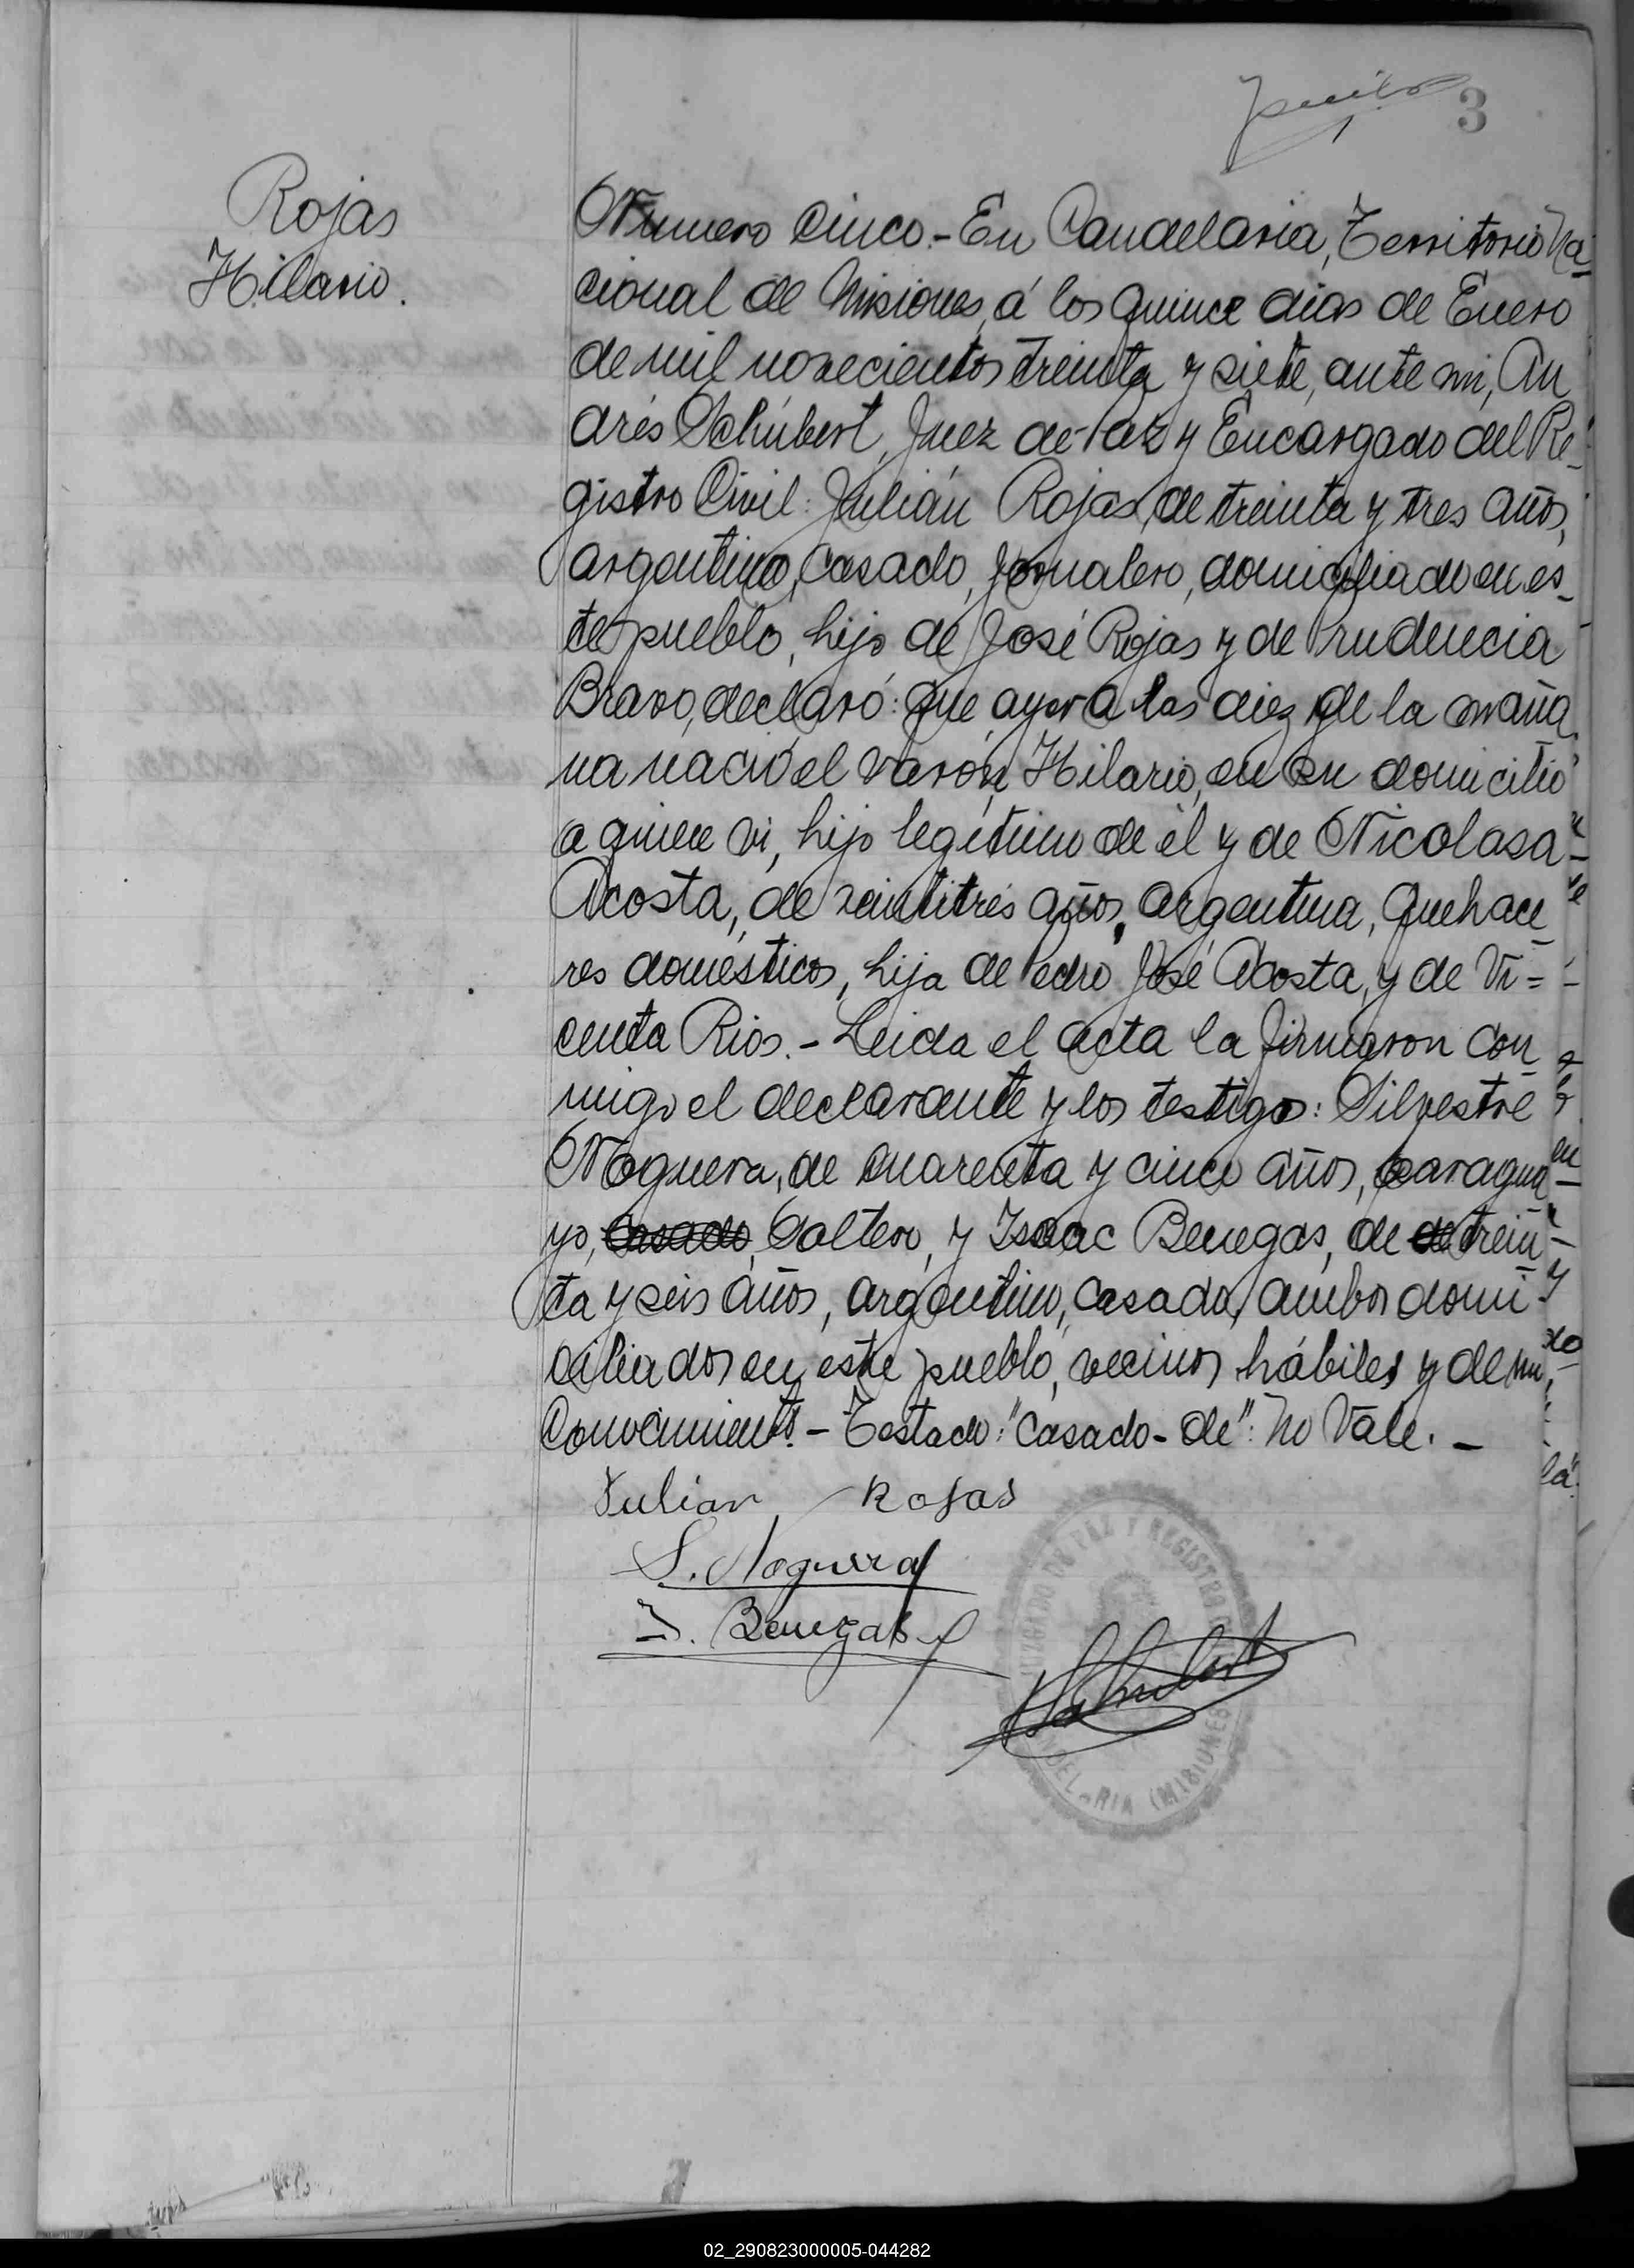 3
Rojas
Hilario.
Número Cinco.- En Candelaria, Territorio Na-
cional de Misiones, á los quince dias de Enero
de mil novecientos treinta y siete, ante mi, An
drés Schúbert, Juez de Paz y Encargado del Re-
gistro Civil: Julián Rojas, de treinta y tres años,
argentino, casado, jornalero, domiciliado en es-
te pueblo, hijo de José Rojas y de Prudencia
Bravo, declaró: que ayer a las diez de la maña
na nació el varón, Hilario, en su domicilio
a quien vi, hijo legítimo de él y de Nicolasa
Acosta, de veintitrés años, argentina, quehace
res domésticos, hija de Pedro José Acosta, y de Vi=
centa Rios.- Leida el acta la firmaron con
migo el declarante y los testigos: Silvestre
Noguera, de cuarenta y cinco años, paragua-
yo, casado, Soltero, y Isaac Benegas, de de trein
ta y seis años, argentino, casado, ambos domi
ciliados en este pueblo, vecinos hábiles y de mi
conocimiento.- Testado: "casado- de": No Vale. -
Julian Rojas
S. Noguera
I. Benegas
Schubert
JUZGADO DE PAZ Y REGISTRO
DELARIA (MISIONES
02_290823000005-044282